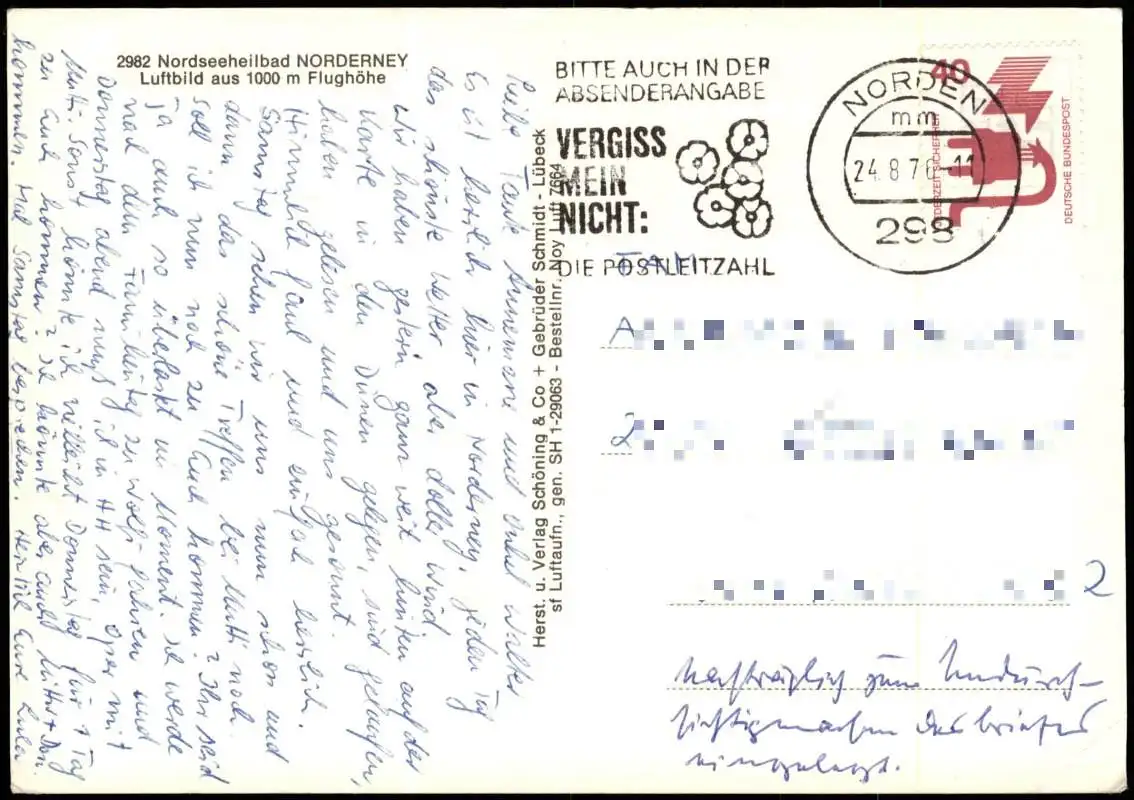 2982 Nordseeheilbad NORDERNEY
Luftbild aus 1000 m Flughöhe
Liebe Tante Annemarie und Onkel Walter
Es ist herrlich hier in Norderney, jeden Tag
das schönste Wetter aber doller Wind
Wir haben gestern ganz weit hinten auf der
Karte in den Dünen gelegen, sind gelaufen,
haben gelesen und uns gesonnt.
Himmlisch faul und einfach herrlich.
Samstag sehen wir uns nun schon und
dann das schöne Treffen bei Mutti noch.
soll ich nun noch zu Euch kommen? Ihr seid
ja auch so überlastet im Moment. Ich werde
nach dem Familientag zu Wolfs fahren und
Donnerstag abend muß ich in HH sein, Oper mit
Mutti. Sonst könnte ich vielleicht Donnerstag für 1 Tag
zu Euch kommen? Ich könnte aber auch Mittw + Don.
kommen. Mal Samstag besprechen. Herzlich Eure
Herst. u. Verlag Schöning & Co + Gebrüder Schmidt - Lübeck
sf Luftaufn., gen. SH 1-29063 - Bestellnr. Noy Luft 7664
BITTE AUCH IN DER
ABSENDERANGABE
VERGISS
MEIN
NICHT:
DIE POSTLEITZAHL
NORDEN
mm
24.8.76-11
298
40
JEDERZEIT SICHERHEIT
DEUTSCHE BUNDESPOST
FAM
A
2
2
nachträglich zum Undurch-
sichtigmachen des Briefes
eingelegt.